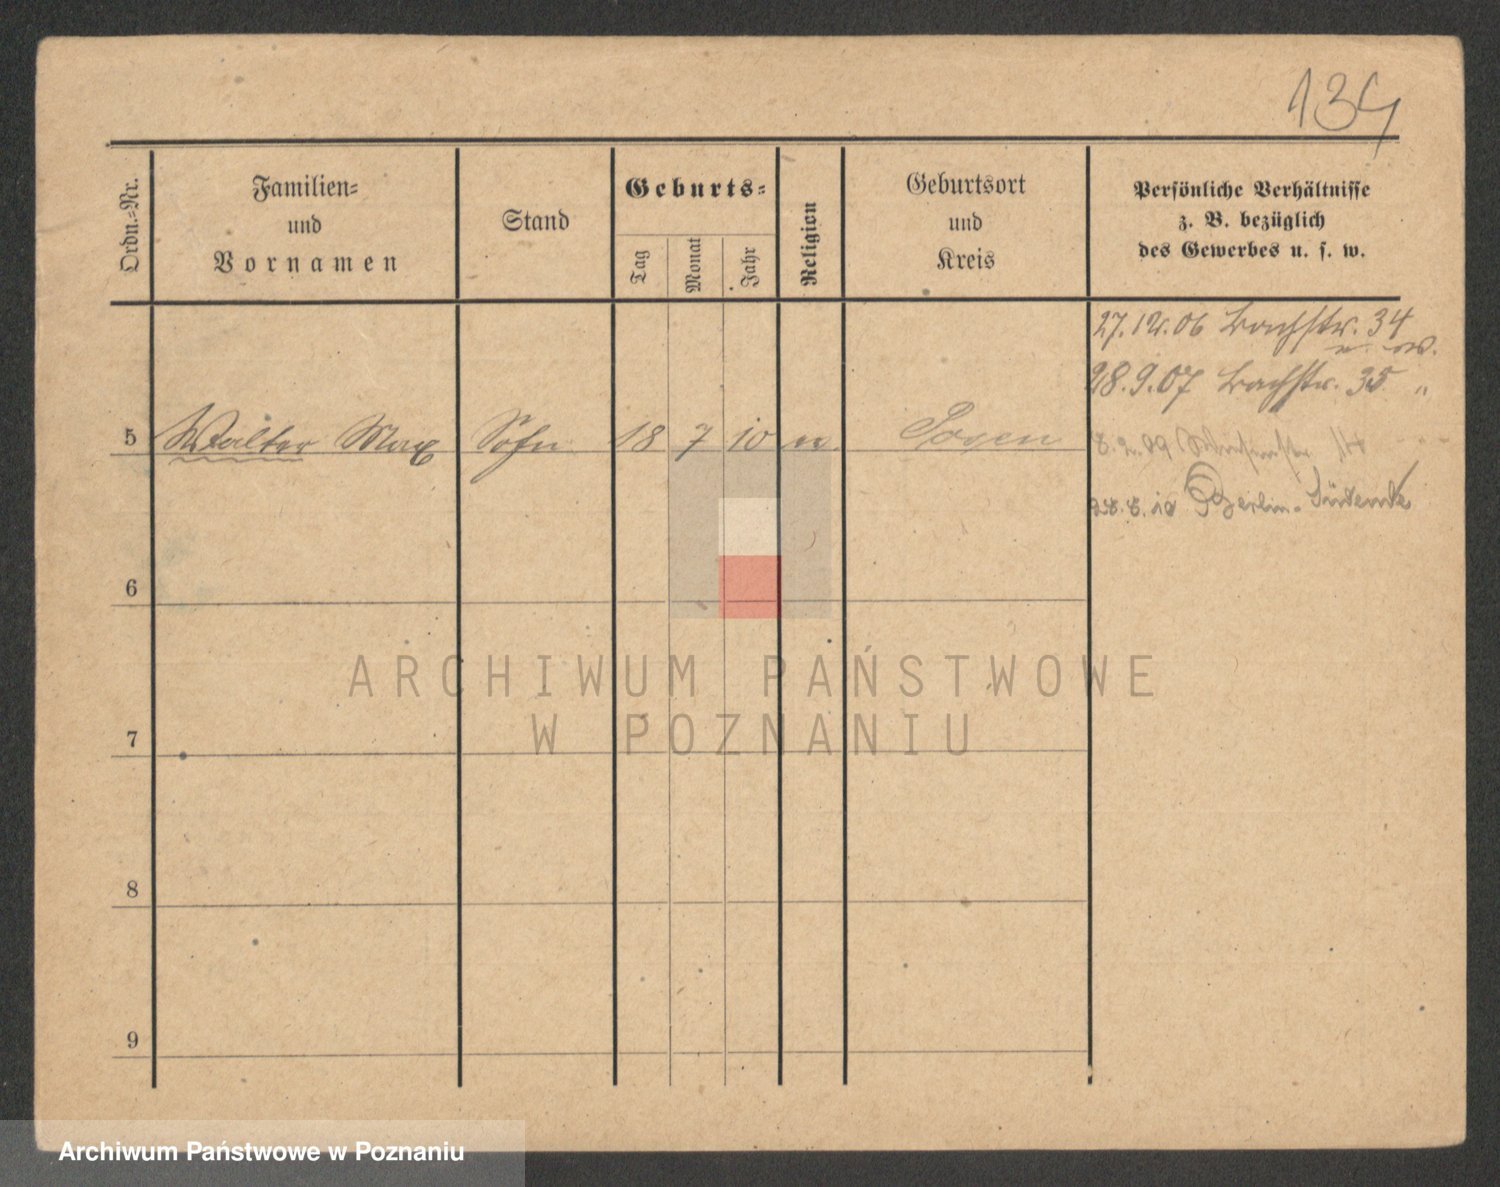 134
Ordn.-Nr.
Familien-
und
Vornamen
Stand
Geburts-
Tag
Monat
Jahr
Religion
Geburtsort
und
Kreis
Persönliche Verhältnisse
z. B. bezüglich
des Gewerbes u. s. w.
27.12.06 Bachstr. 34
28.9.07 Bachstr. 35 "
5 Walter Max Sohn 18 7 10 Posen
8.2.09
28.8.10 Berlin-Südende
6
7
8
9
ARCHIWUM PAŃSTWOWE
W POZNANIU
Archiwum Państwowe w Poznaniu